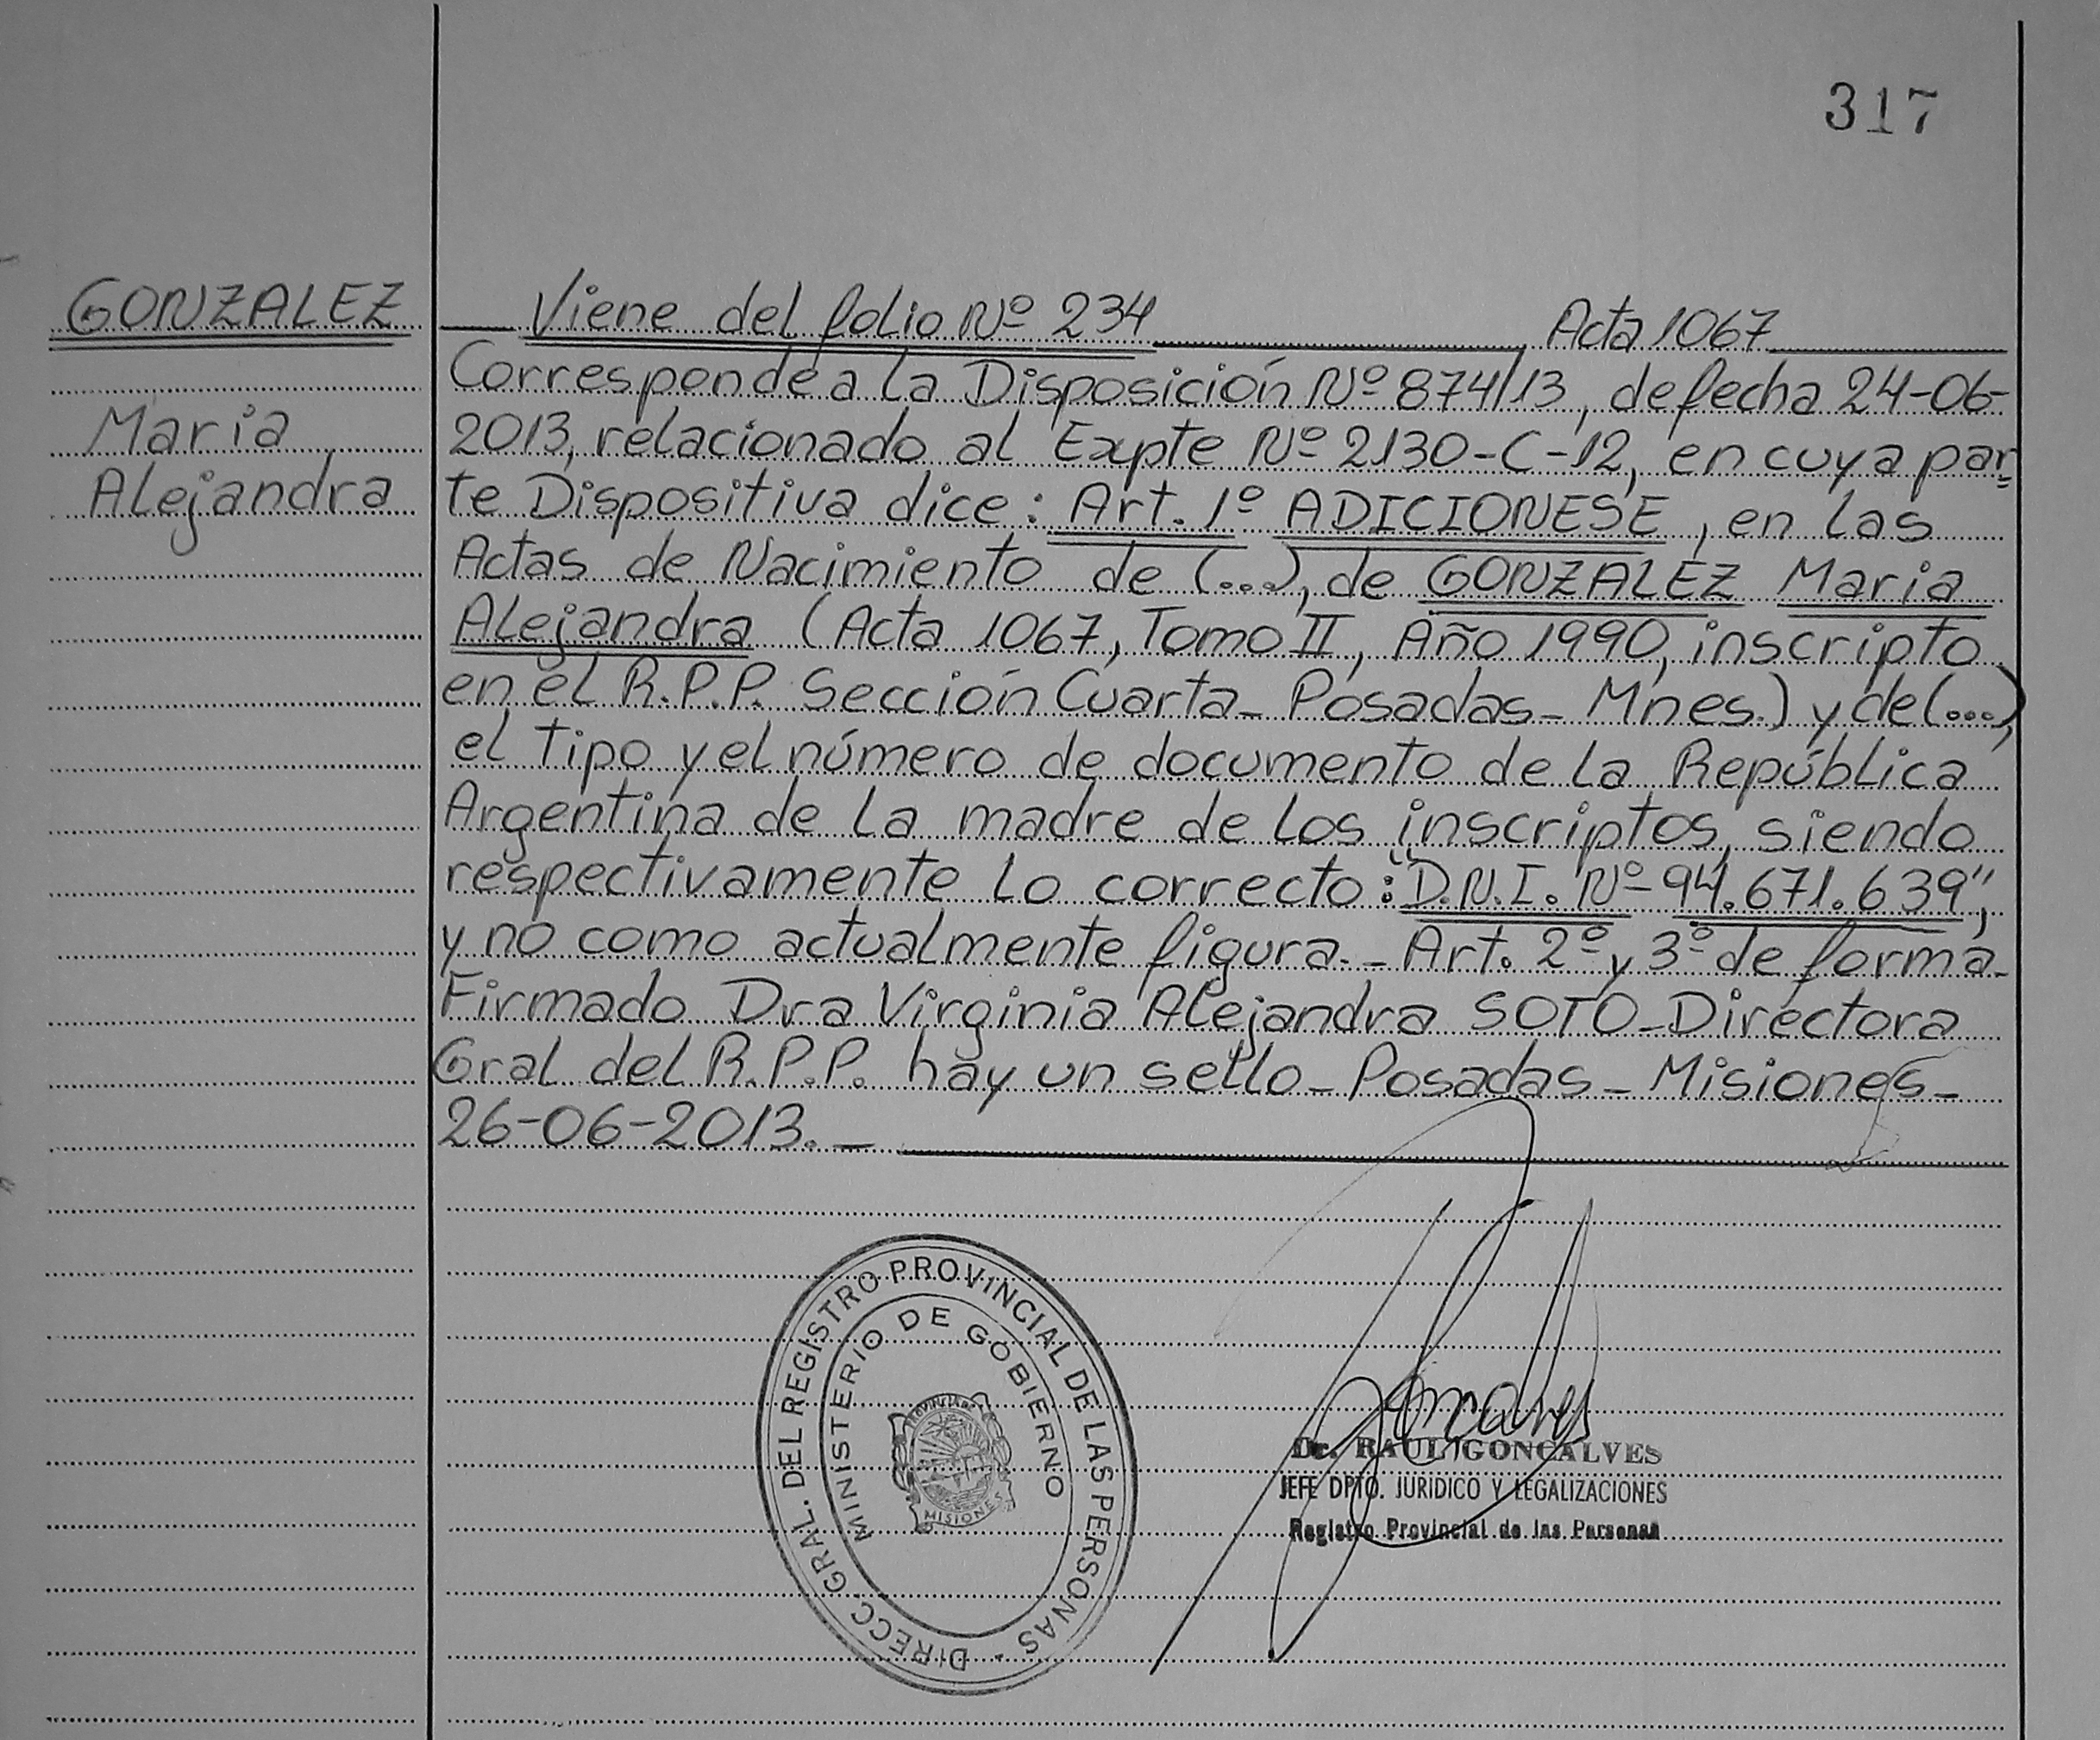 317
GONZALEZ
Maria
Alejandra
Viene del folio Nº 234 Acta 1067
Corresponde a la Disposición Nº 874/13, de fecha 24-06-
2013, relacionado al Expte Nº 2130-C-12, en cuya par=
te Dispositiva dice: Art. 1º ADICIONESE, en las
Actas de Nacimiento de (...), de GONZALEZ Maria
Alejandra (Acta 1067, Tomo II, Año 1990, inscripto
en el R.P.P. Sección Cuarta_ Posadas_ Mnes.) y de (...),
el tipo y el número de documento de la República
Argentina de la madre de los inscriptos, siendo
respectivamente lo correcto: "D.N.I. Nº 94.671.639",
y no como actualmente figura._ Art. 2º y 3º de forma_
Firmado Dra Virginia Alejandra SOTO_Directora
Gral del R.P.P. hay un sello_Posadas_Misiones_
26-06-2013._
DIRECC. GRAL. DEL REGISTRO PROVINCIAL DE LAS PERSONAS
MINISTERIO DE GOBIERNO
PROVINCIA DE
MISIONES
Goncalves
Dr. RAUL GONCALVES
JEFE DPTO. JURIDICO Y LEGALIZACIONES
Registro Provincial de las Personas